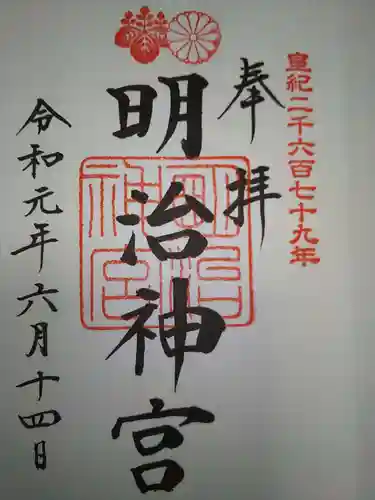 皇紀二千六百七十九年
奉拝
明治神宮
明治神宮
令和元年六月十四日